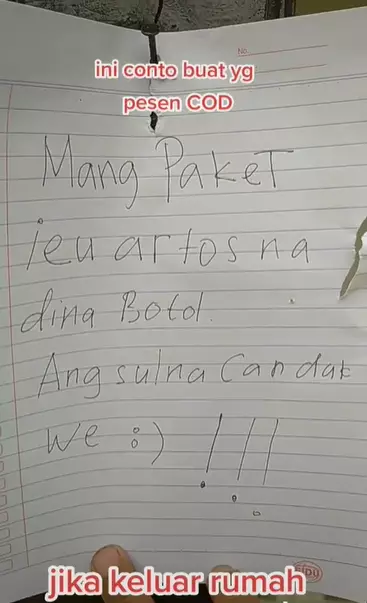 No.
ini conto buat yg
pesen COD
Mang Paket
ieu artos na
dina Botol.
Angsulna Candak
we :) !!!
SIDU
jika keluar rumah